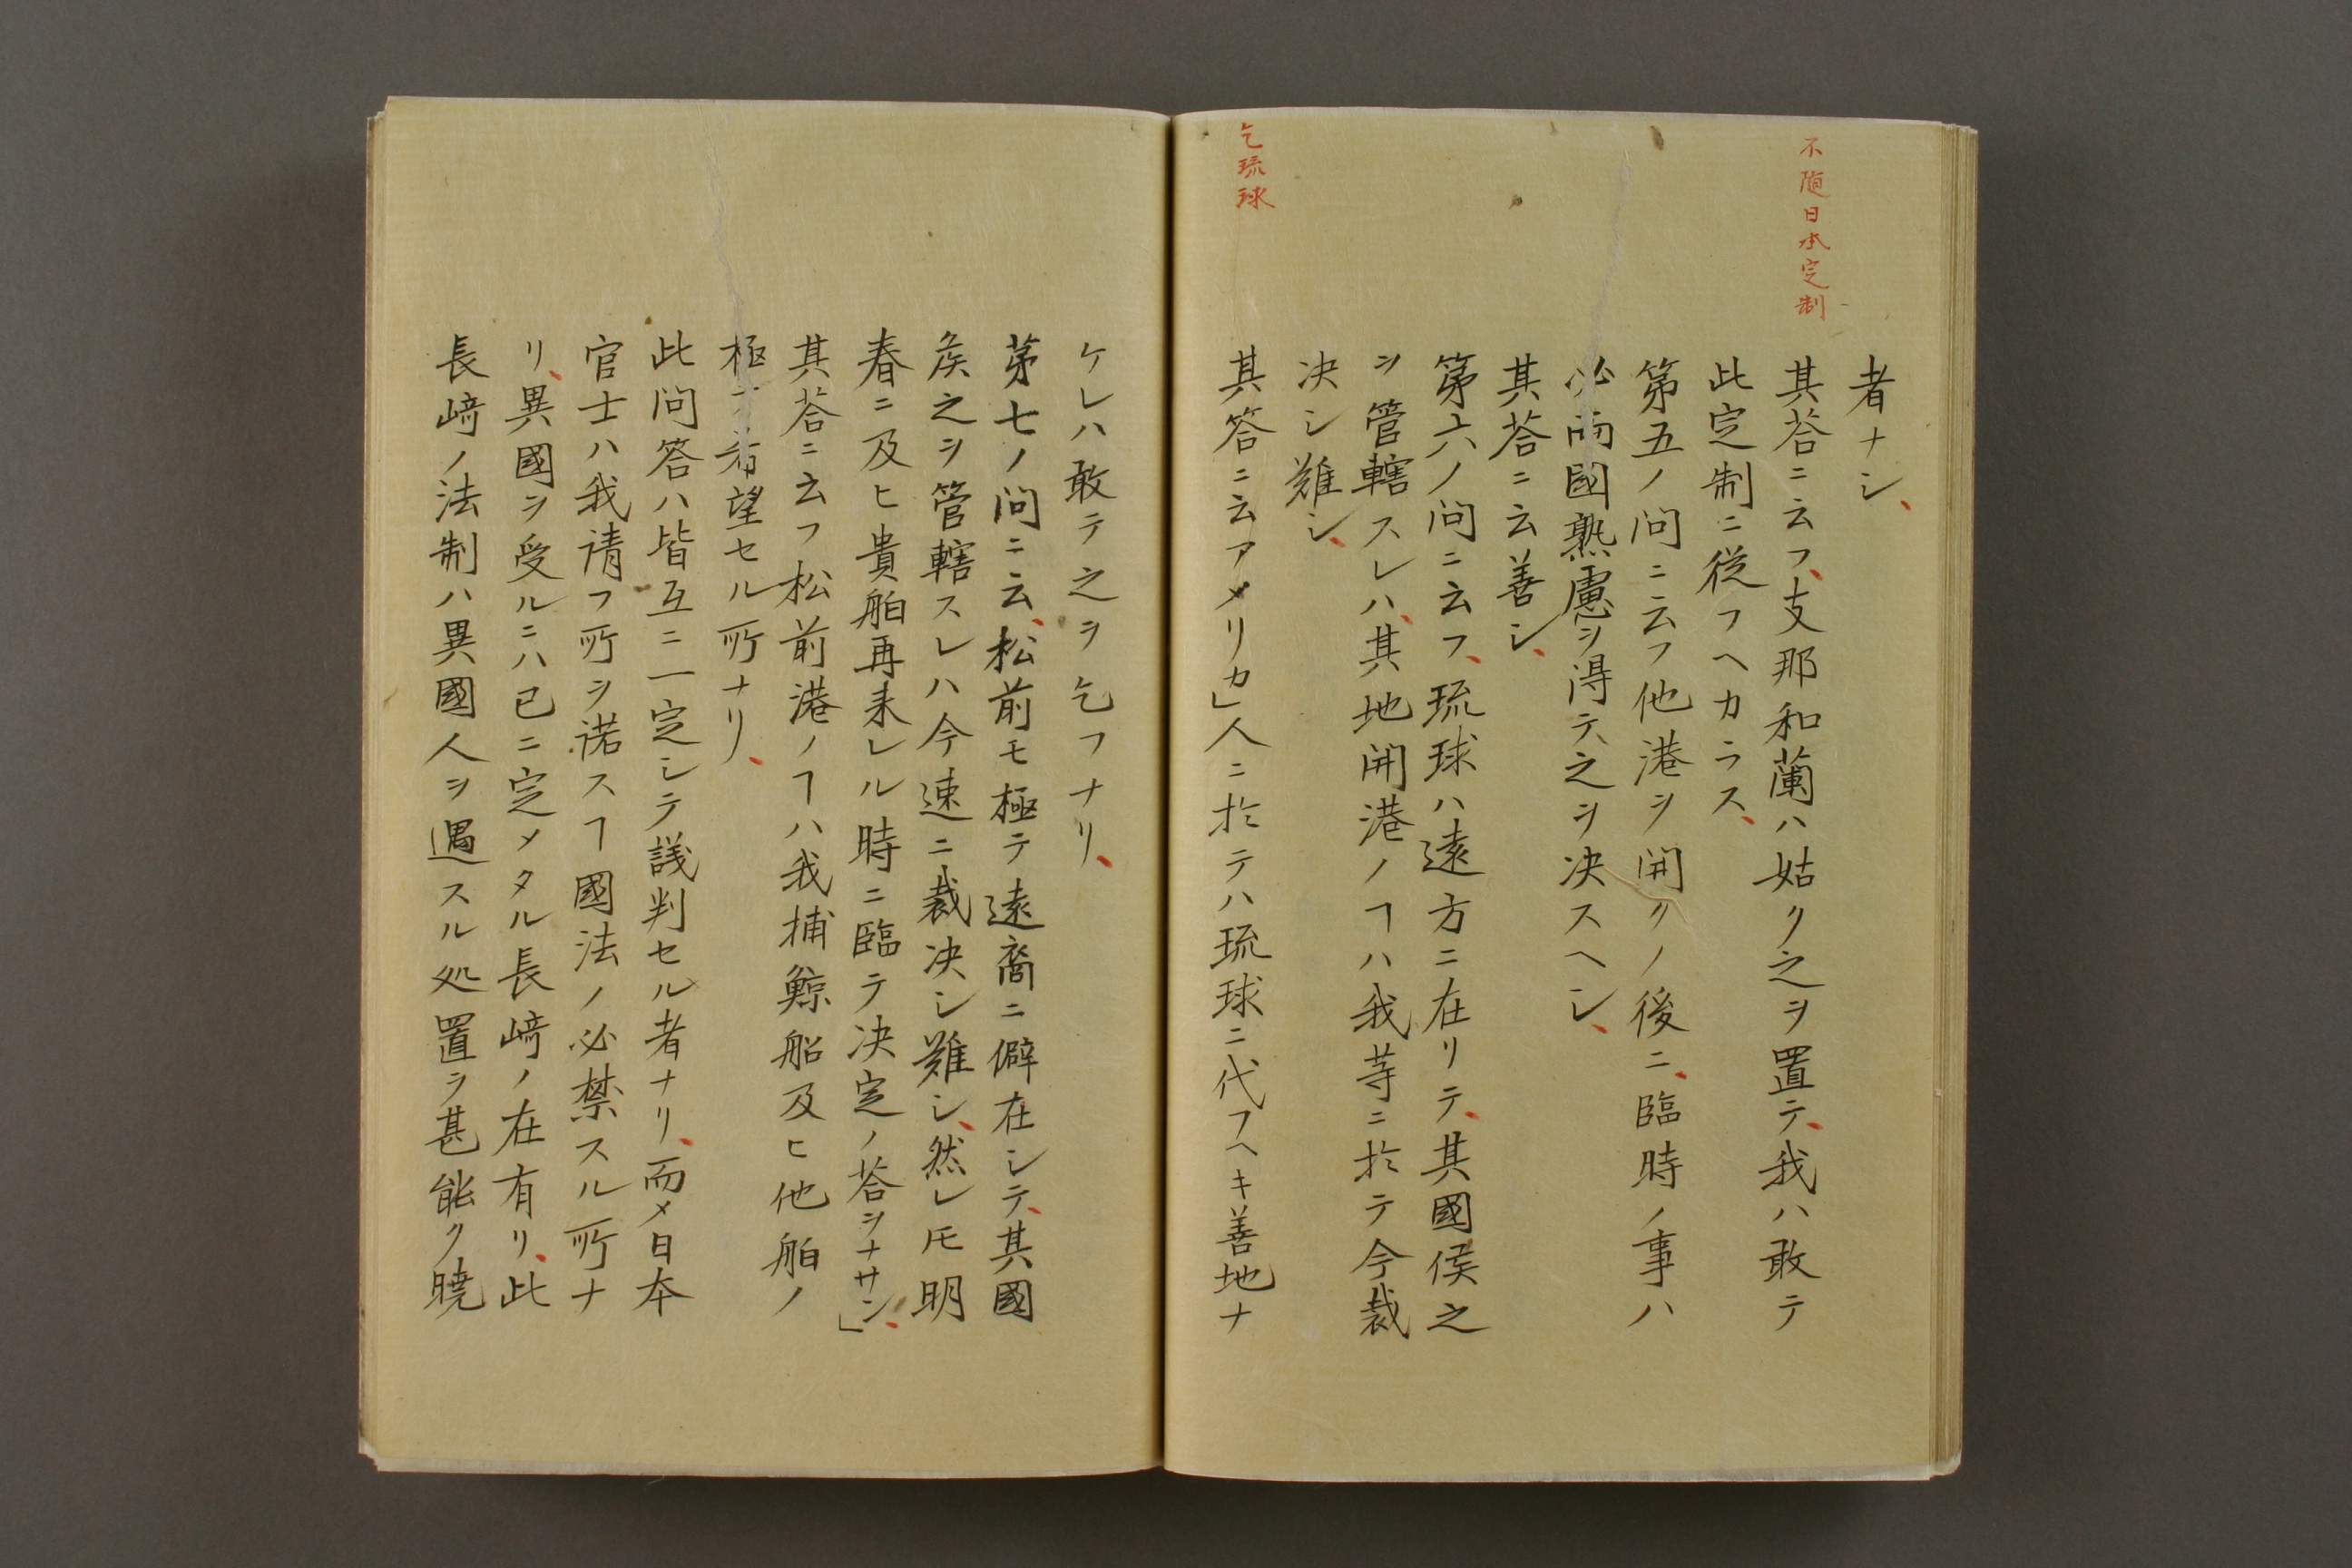 不随日本定制
者ナシ、
其荅ニ云フ、支那和蘭ハ姑ク之ヲ置テ、我ハ敢テ
此定制ニ従フヘカラス、
第五ノ問ニ云フ他港ヲ開クノ後ニ、臨時ノ事ハ
必両國熟慮ヲ得テ之ヲ决スヘシ、
其荅ニ云善シ、
第六ノ問ニ云フ、琉球ハ遠方ニ在リテ、其國侯之
ヲ管轄スレハ、其地開港ノヿハ我䓁ニ於テ今裁
决シ難シ、
乞琉球
其答ニ云アメリカ」人ニ於テハ琉球ニ代フヘキ善地ナ
ケレハ敢テ之ヲ乞フナリ、
苐七ノ問ニ云、松前モ極テ遠裔ニ僻在シテ、其國
侯之ヲ管轄スレハ今速ニ裁决シ難シ、然レ𪜈明
春ニ及ヒ貴舶再来レル時ニ臨テ决定ノ荅ヲナサン、」
其荅ニ云フ松前港ノヿハ我捕鯨船及ヒ他舶ノ
極テ希望セル所ナリ、
此問答ハ皆互ニ一定シテ議判セル者ナリ、而〆日本
官士ハ我请フ所ヲ諾スヿ國法ノ必禁スル所ナ
リ、異國ヲ受ルニハ已ニ定メタル長﨑ノ在有リ、此
長﨑ノ法制ハ異國人ヲ遇スル処置ヲ甚能ク曉